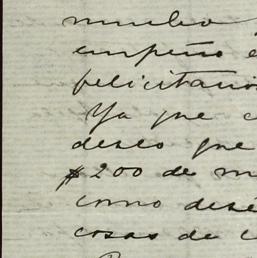 mucho
empeño
felicitario
Ya que
deseo que
$200 de m
como desé
cosas de